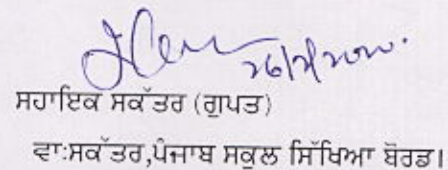 ਸਹਾਇਕ ਸਕੱਤਰ (ਗੁਪਤ)
ਵਾ:ਸਕੱਤਰ,ਪੰਜਾਬ ਸਕੂਲ ਸਿੱਖਿਆ ਬੋਰਡ।